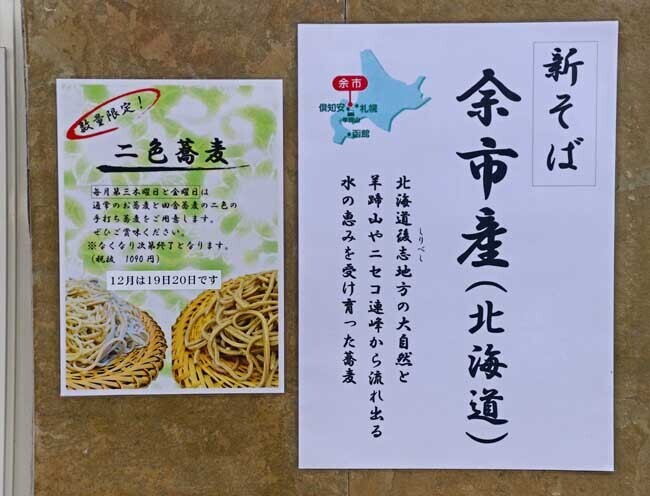 数量限定！
二色蕎麦
毎月第三木曜日と金曜日は
通常のお蕎麦と田舎蕎麦の二色の
手打ち蕎麦をご用意します。
ぜひご賞味ください。
※なくなり次第終了となります。
(税抜 1090円)
12月は19日20日です
新そば
余市産(北海道)
余市
倶知安
札幌
羊蹄山
函館
北海道後志地方の大自然と
しりべし
羊蹄山やニセコ連峰から流れ出る
水の恵みを受け育った蕎麦